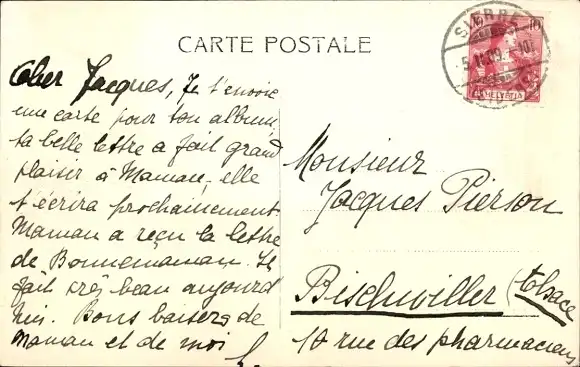 CARTE POSTALE
SIERRE
5.II.09.-10
10
HELVETIA
Cher Jacques, Je t'envoie
une carte pour ton album,
ta belle lettre a fait grand
plaisir à Maman, elle
t'écrira prochainement.
Maman a reçu la lettre
de Bonnemaman. Il
fait très beau aujourd
hui. Bons baisers de
Maman et de moi
Monsieur
Jacques Pierson
Bischwiller (Alsace
10 rue des pharmaciens